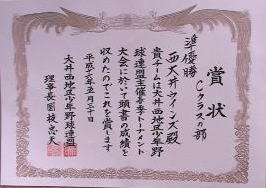 賞状
Cクラスの部
準優勝
西大井ウインズ殿
貴チームは大井西地区少年野
球連盟主催春季トーナメント
大会に於いて頭書の成績を
収めたのでこれを賞します
平成六年五月二十日
大井西地区少年野球連盟
理事長